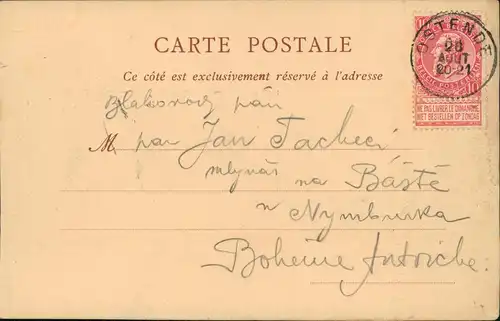 CARTE POSTALE
Ce côté est exclusivement réservé à l'adresse
OSTENDE
26
AOUT
20-21
10
NE PAS LIVRER LE DIMANCHE
NIET BESTELLEN OP ZONDAG
pán
M. pan Jan
mlynář na Báště
u Nymburka
Boheme Autriche